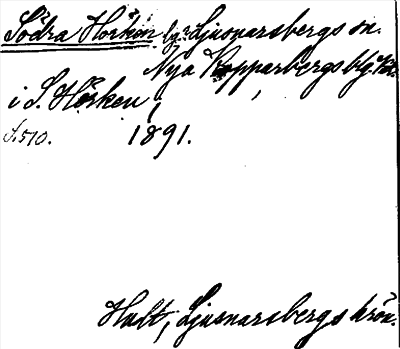 Södra Hörken by: Ljusnarsbergs sn.
Nya Kopparbergs blg.
i S. Hörken,
S. 510. 1891.
Hult, Ljusnarsbergs krön.